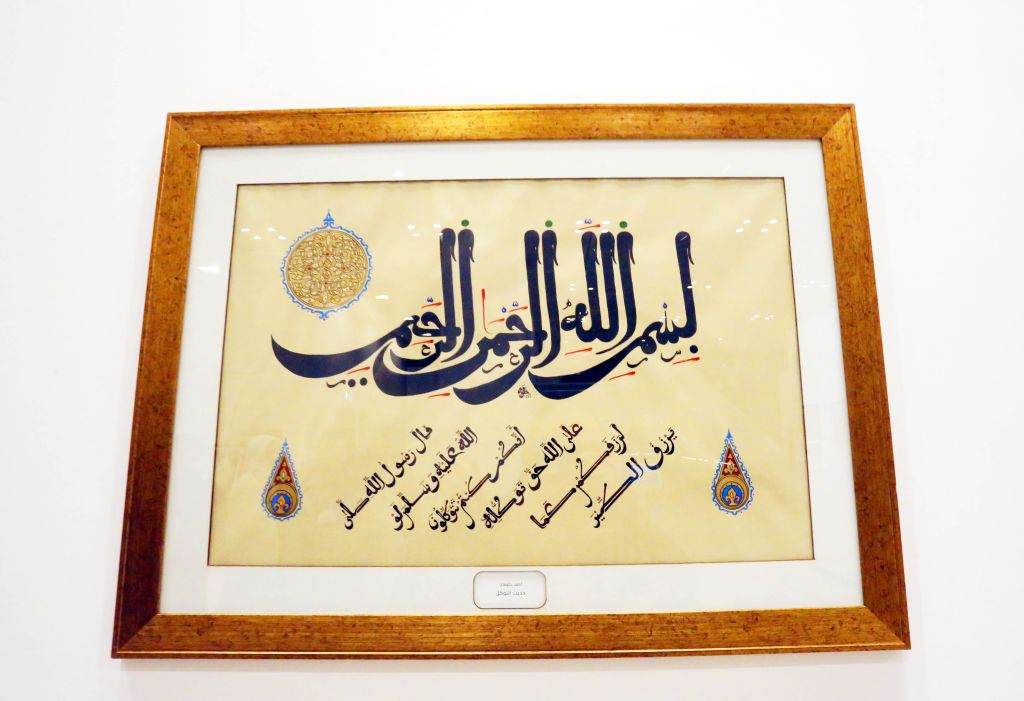 بِسْمِ اللَّهِ الرَّحْمٰنِ الرَّحِيمِ
قال رسول الله صلى
الله عليه وسلم لو
أنكم كنتم توكلون
على الله حق توكله
لرزقكم كما
يرزق الطير
حديث التوكل